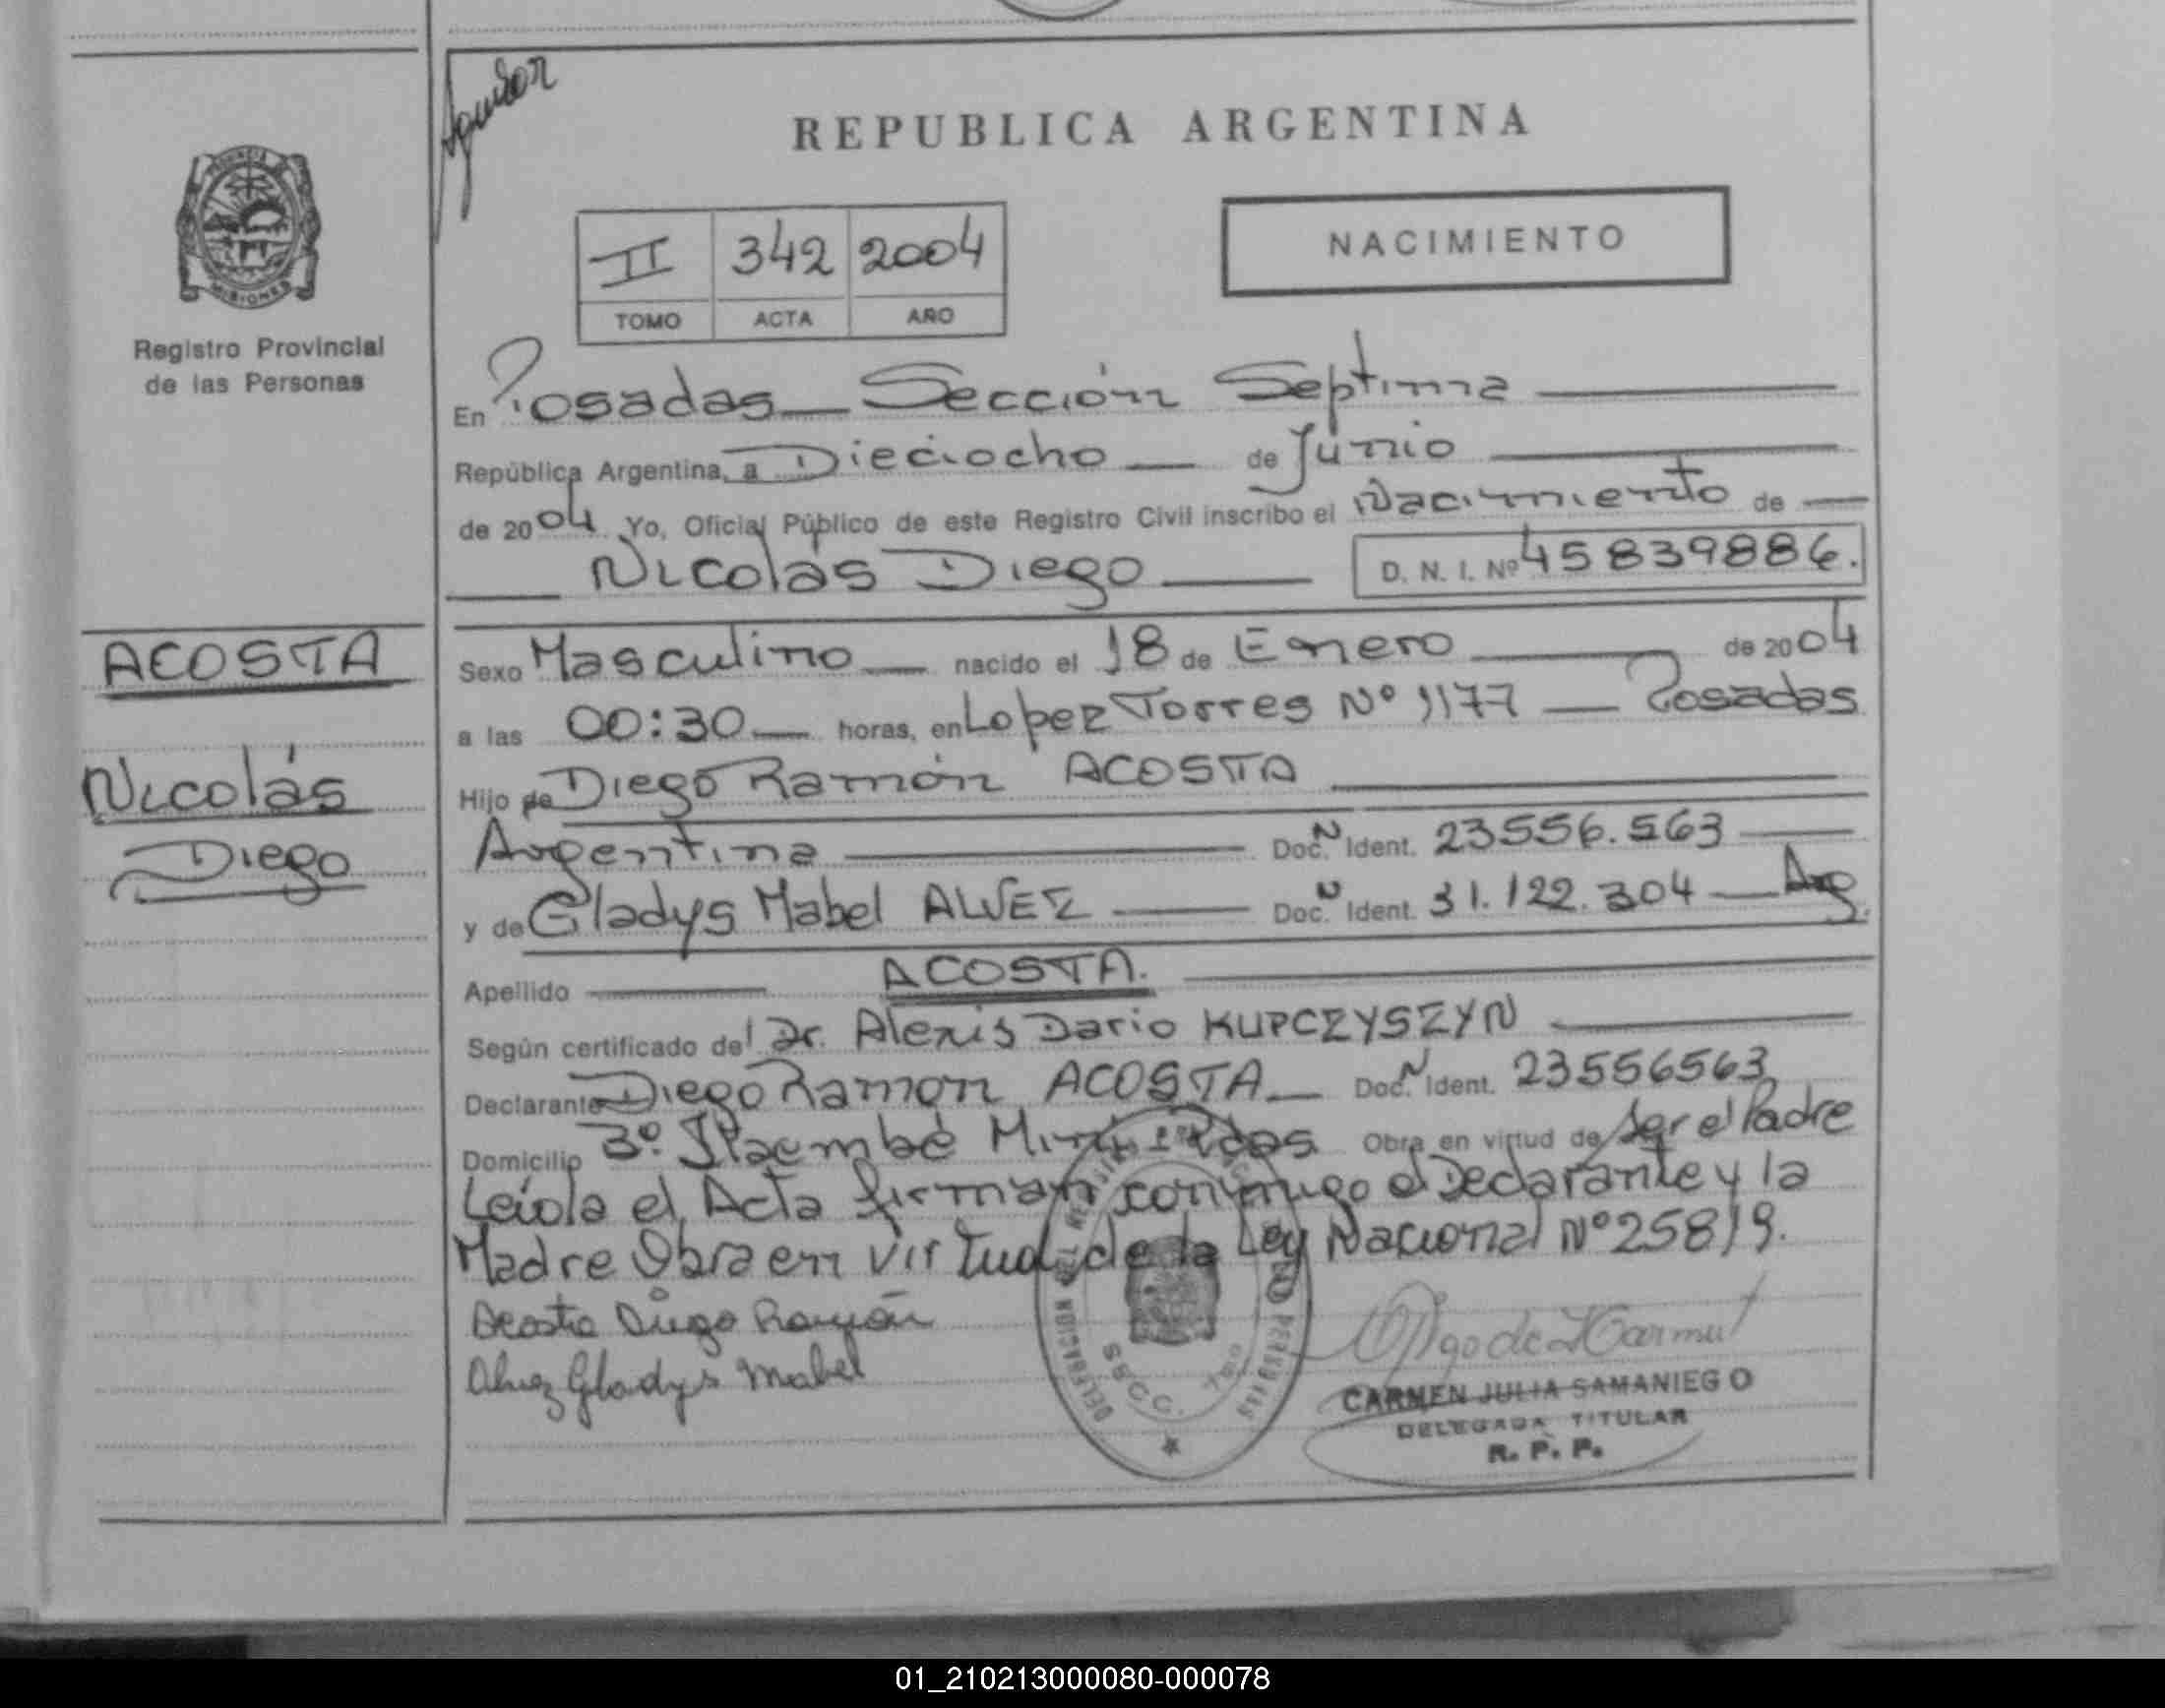 Aguilar
REPUBLICA ARGENTINA
PROVINCIA DE
MISIONES
Registro Provincial
de las Personas
II 342 2004
TOMO ACTA AÑO
NACIMIENTO
En Posadas Sección Septima
República Argentina, a Dieciocho de Junio
de 2004 Yo, Oficial Público de este Registro Civil inscribo el Nacimiento de
Nicolás Diego D. N. I. Nº 45839886.
ACOSTA
Nicolás
Diego
Sexo Masculino nacido el 18 de Enero de 2004
a las 00:30 horas, en Lopez Torres Nº 1177 Posadas
Hijo de Diego Ramón ACOSTA
Argentina Doc. N Ident. 23556.563
y de Gladys Mabel ALVEZ Doc. N Ident. 31.122.304 Arg.
Apellido ACOSTA.
Según certificado del Dr. Alexis Dario KUPCZYSZYN
Declarante Diego Ramon ACOSTA Doc. N Ident. 23556563
Domicilio Bº Itaembé Miní Pdas Obra en virtud de Ser el Padre
Leíola el Acta firman conmigo el Declarante y la
Madre Obra en virtud de la Ley Nacional Nº 25819.
Acosta Diego Ramón
Alvez Gladys Mabel
DELEGACION DEL REGISTRO PERSONAS
SECC. 7
CARMEN JULIA SAMANIEGO
DELEGADA TITULAR
R. P. P.
01_210213000080-000078